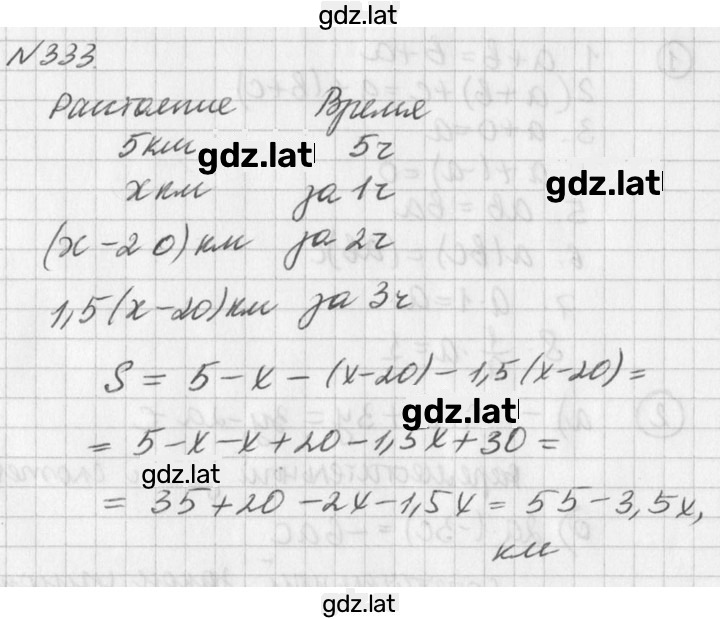 gdz.lat
№333.
Расстояние Время
5км gdz.lat 5ч
x км за 1ч gdz.lat
(x-20)км за 2ч
1,5(x-20)км за 3ч
S = 5-x-(x-20)-1,5(x-20)=
gdz.lat
= 5-x-x+20-1,5x+30=
gdz.lat
= 35+20-2x-1,5x=55-3,5x,
км
gdz.lat